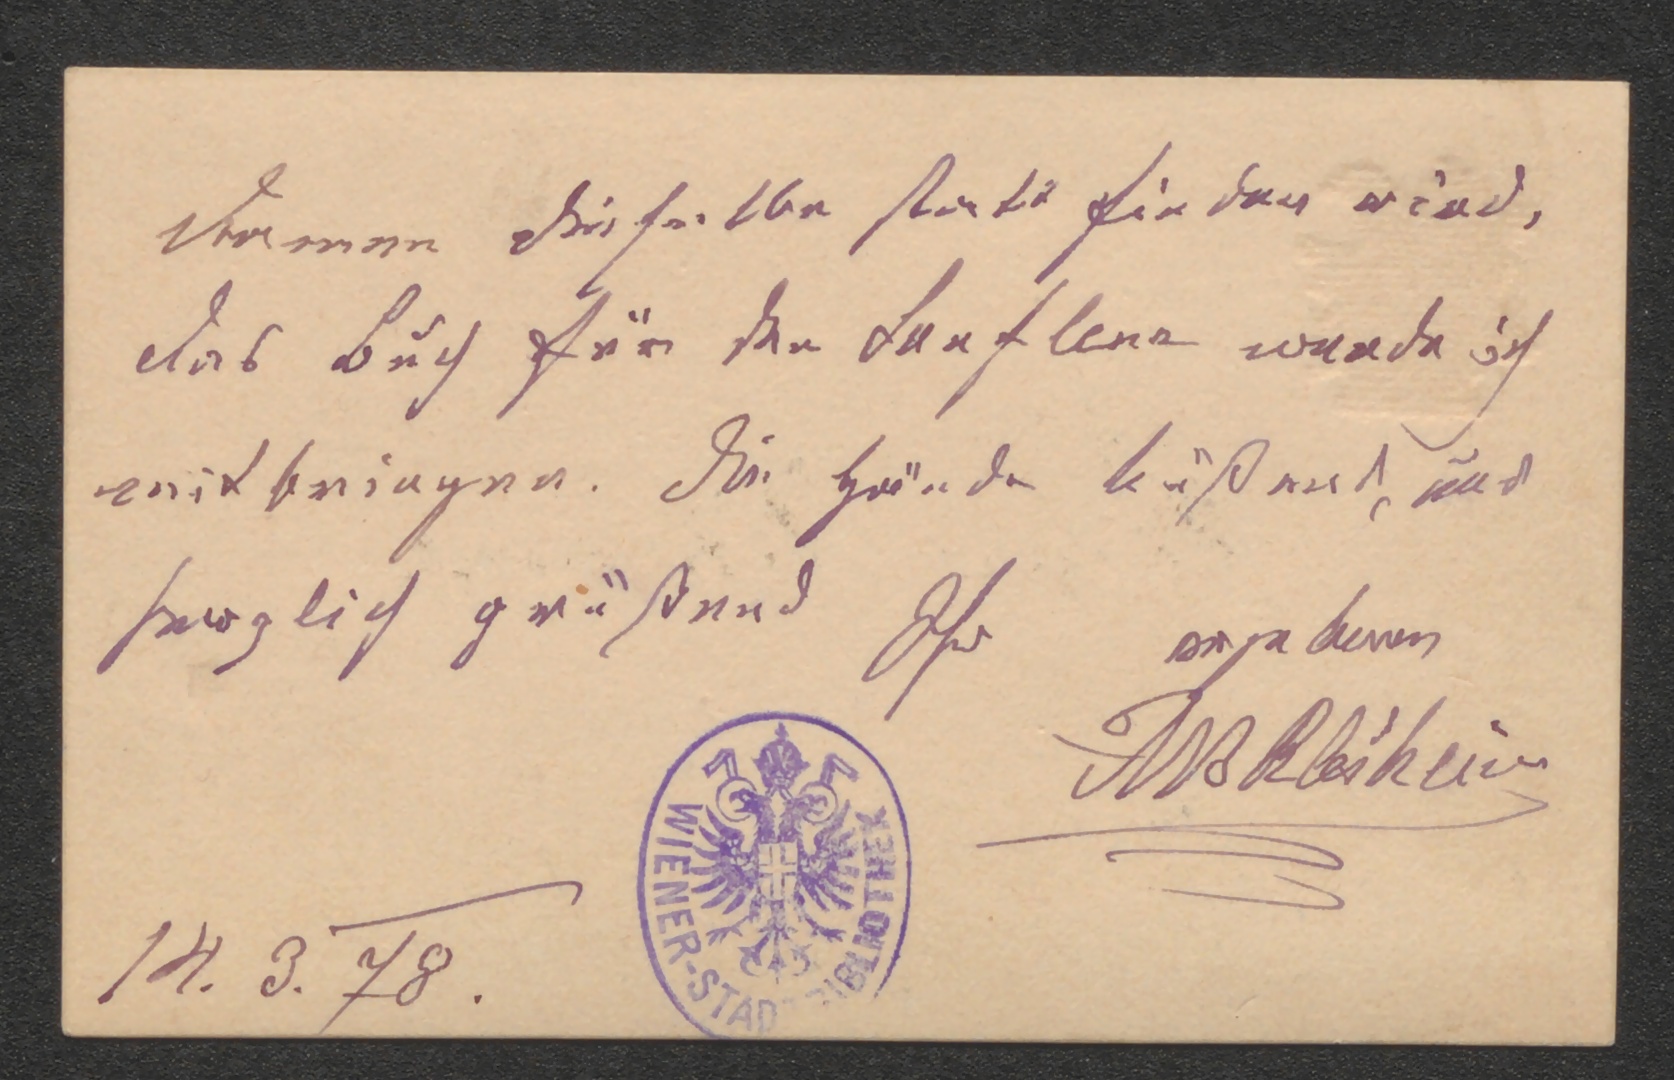 kommen dieselbe statt finden wird,
das Buch für den werde ich
mitbringen. Die Hände küßend, und
herzlich grüßend Ihr ergebener
14. 3. 78.
WIENER-STADTBIBLIOTHEK